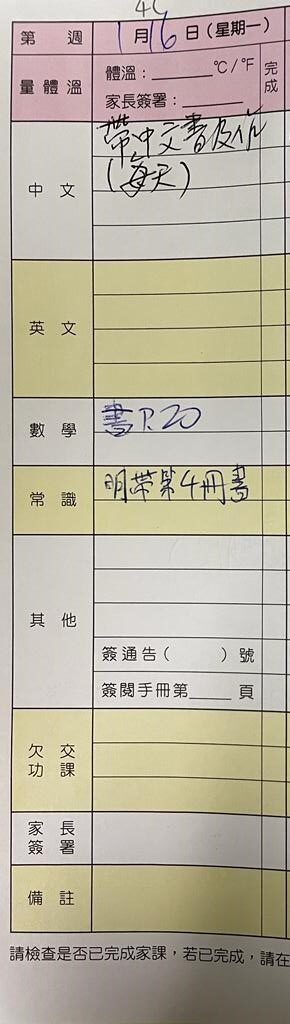 4C
第 週 1月16日(星期一)
量體溫 體溫：______ °C/°F 完成
家長簽署：______
中文 帶中文書及作
(每天)
英文
數學 書P.20
常識 明帶第4冊書
其他
簽通告( )號
簽閱手冊第____頁
欠交功課
家長簽署
備註
請檢查是否已完成家課，若已完成，請在